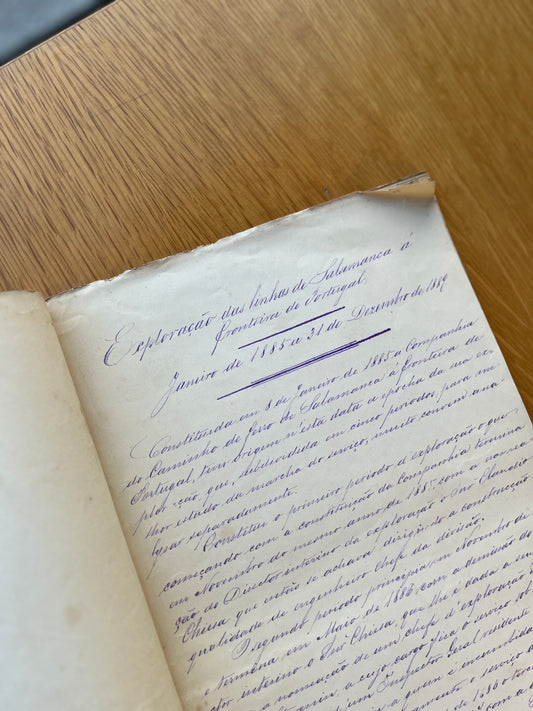 Exploração das linhas de Salamanca á
fronteira de Portugal
Janeiro de 1885 a 31 de Dezembro de 1889
Constituida em 8 de Janeiro de 1885 a Companhia
do Caminho de ferro de Salamanca á fronteira de
Portugal, tem origem n'esta data a epocha da sua ex
ploração que, subdividida em cinco periodos para me
lhor estudo da marcha do serviço, muito convem ana
lysar separadamente.
Constitue o primeiro periodo d'exploração o que
começando com a constituição da Companhia termina
em Novembro do mesmo anno de 1885 com a nomea
ção do Director interino da exploração o Snr Claudio
Chiesa que então se achava dirigindo a construcção na
qualidade de engenheiro chefe da divisão.
O segundo periodo principia em Novembro de
e termina em Maio de 1886 com a demissão do
ctor interino o Snr Chiesa, que lhe é dada a seu
a nomeação de um chefe d'exploração
a cujo cargo fica o serviço sob
um Inspector Geral residente
a quem é incumbida
o serviço a
de 1886 o terc
com a